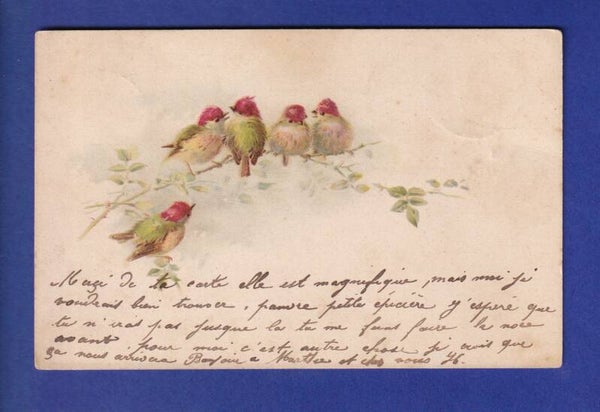 Merçi de ta carte elle est magnifique, mais moi ji
voudrais bien trouver, pauvre petite épicière y'espére que
tu n'iras pas jusque la tu me faire la noce
avant, pour moi c'est autre chose ji crois que
ça nous arrivera Bonjour a Marthe et chez vous H.